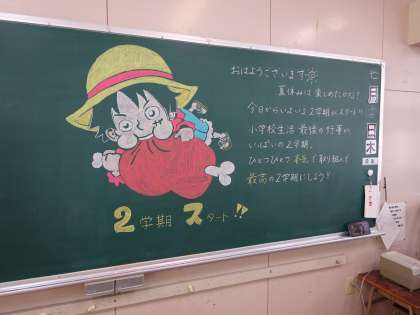 おはようございます
夏休みは楽しめたかな?
今日からいよいよ2学期がスタート!!
小学校生活 最後の行事が
いっぱいの2学期。
ひとつひとつ 本気で取り組んで
最高の2学期にしよう!!
2学期 スタート!!
月
日
木